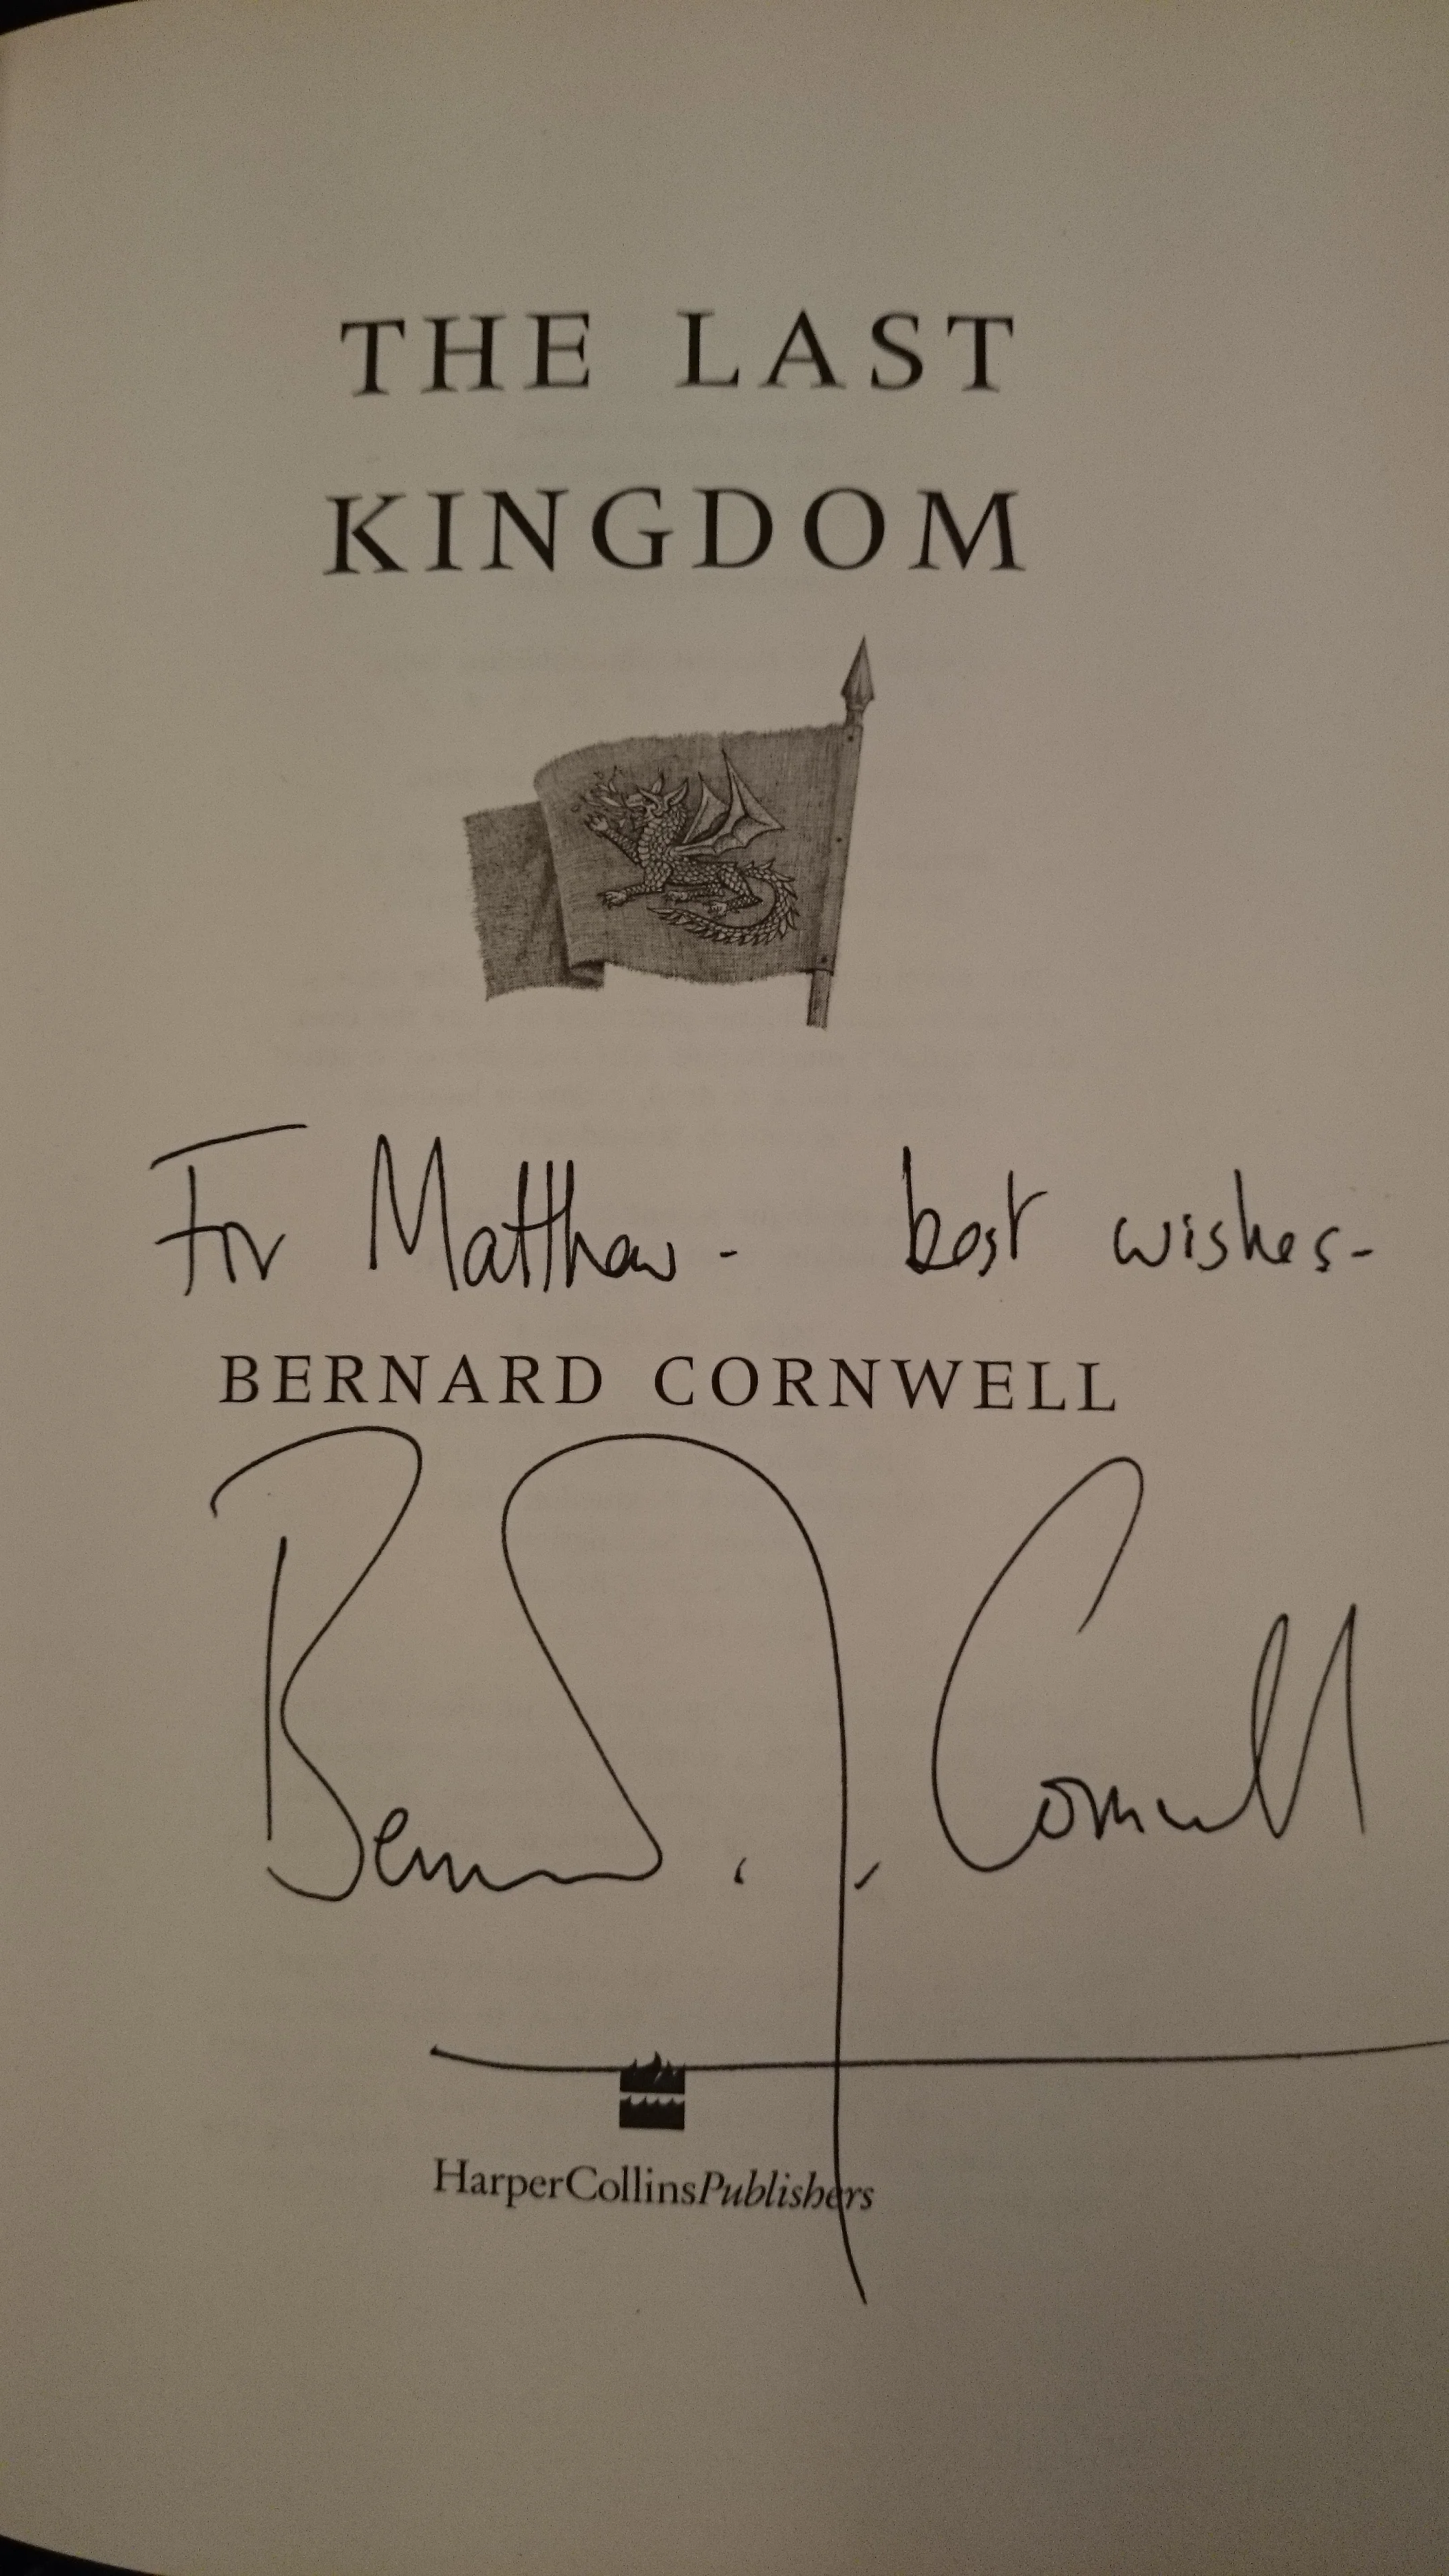 THE LAST
KINGDOM
For Matthew - best wishes -
BERNARD CORNWELL
Bernard Cornwell
HarperCollinsPublishers